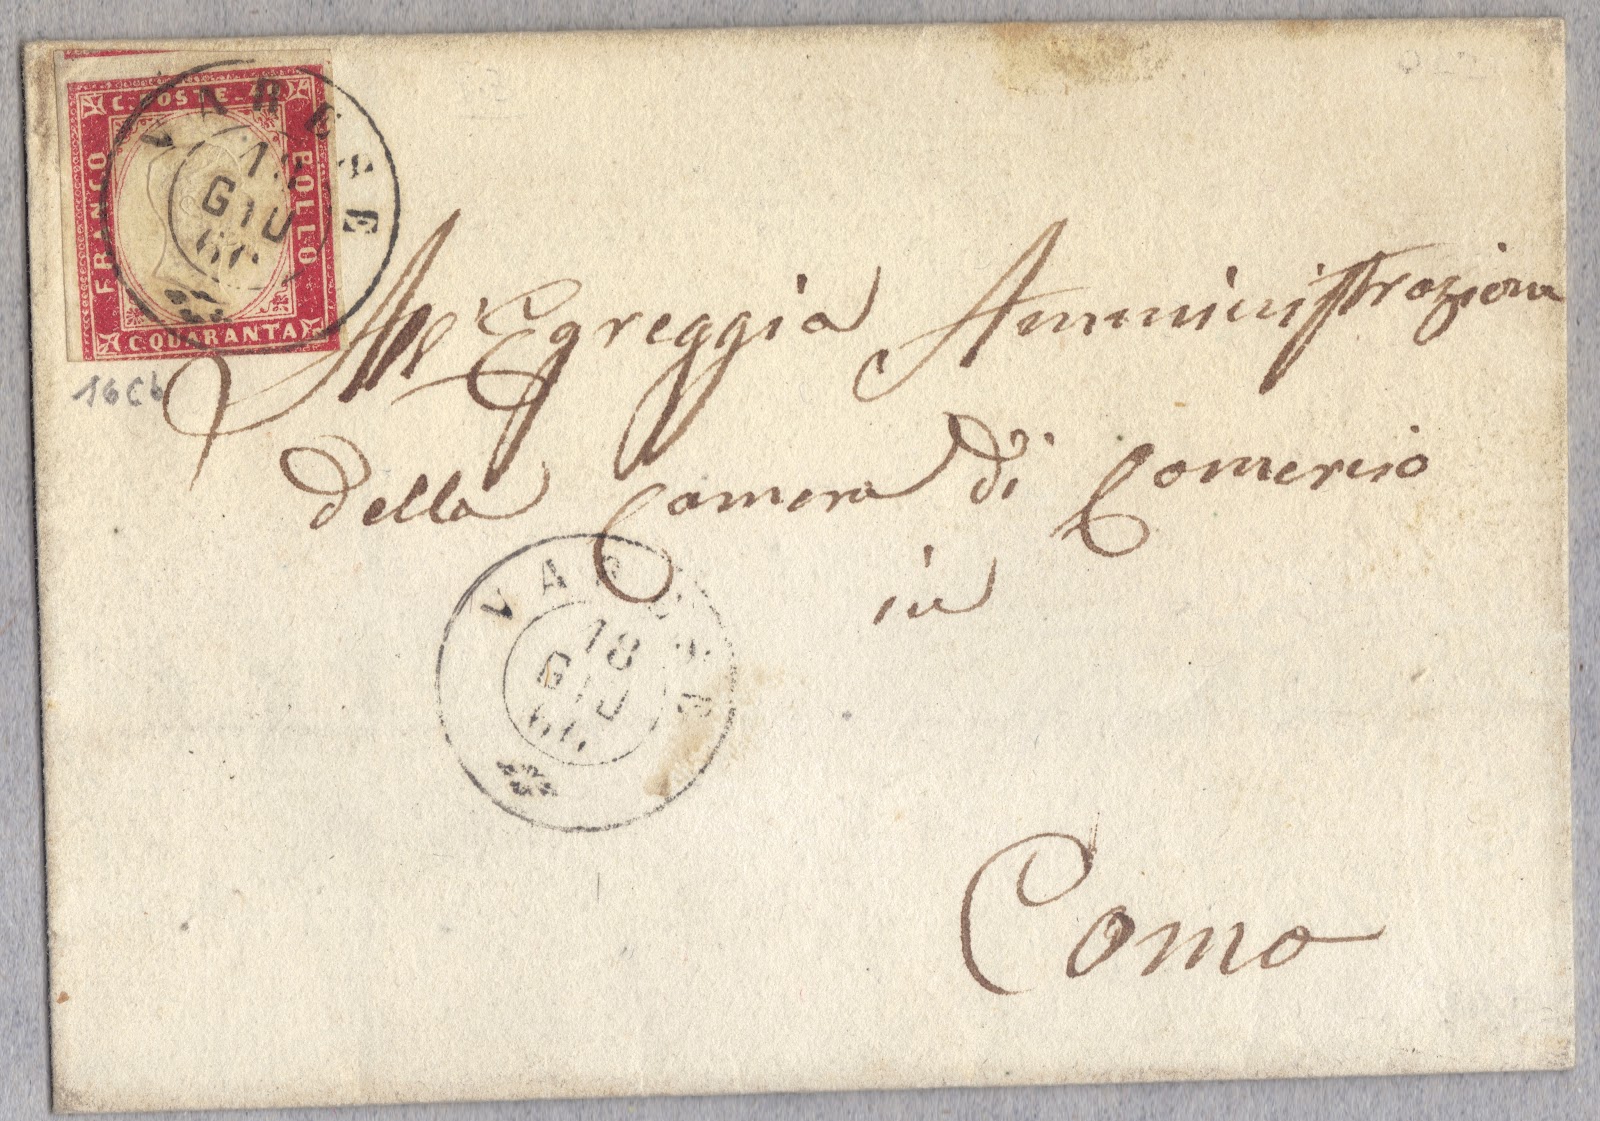 C. POSTE. 40
FRANCO
BOLLO
C. QUARANTA
VARESE
GIU
16Cb
All'Egreggia Amministrazione
della Camera di Comercio
in
VARESE
18
GIU
60
Como